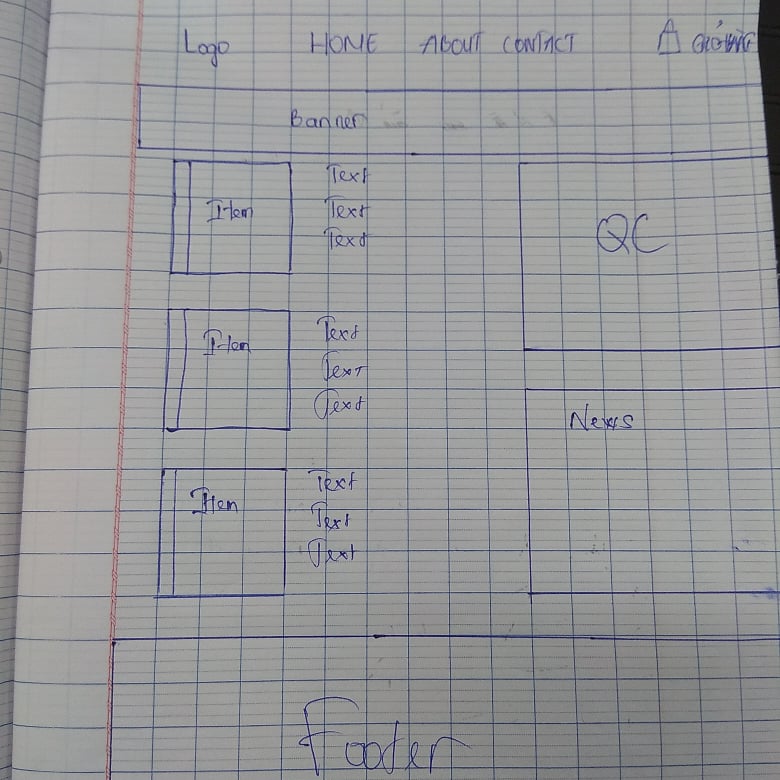 Logo HOME ABOUT CONTACT GIỎ HÀNG
Banner
Item
Text
Text
Text
QC
Item
Text
Text
Text
News
Item
Text
Text
Text
Footer